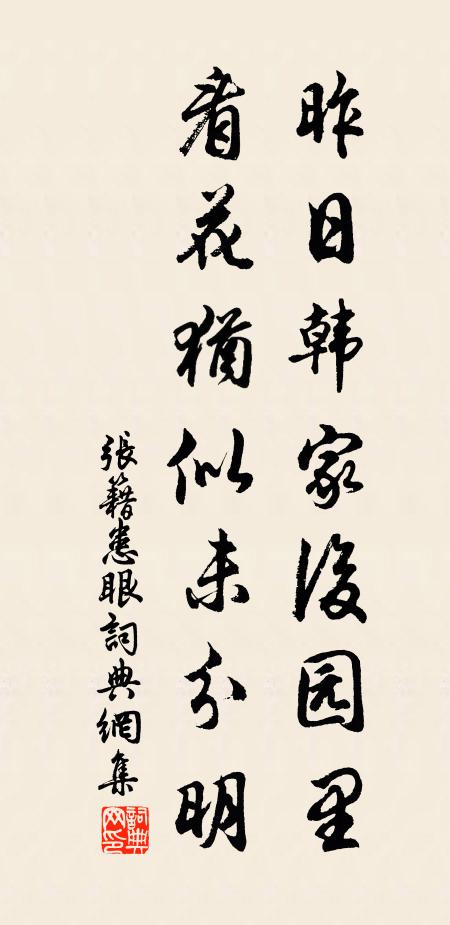 昨日韩家後园里
看花犹似未分明
張籍患眼詞典網集
詞典网印